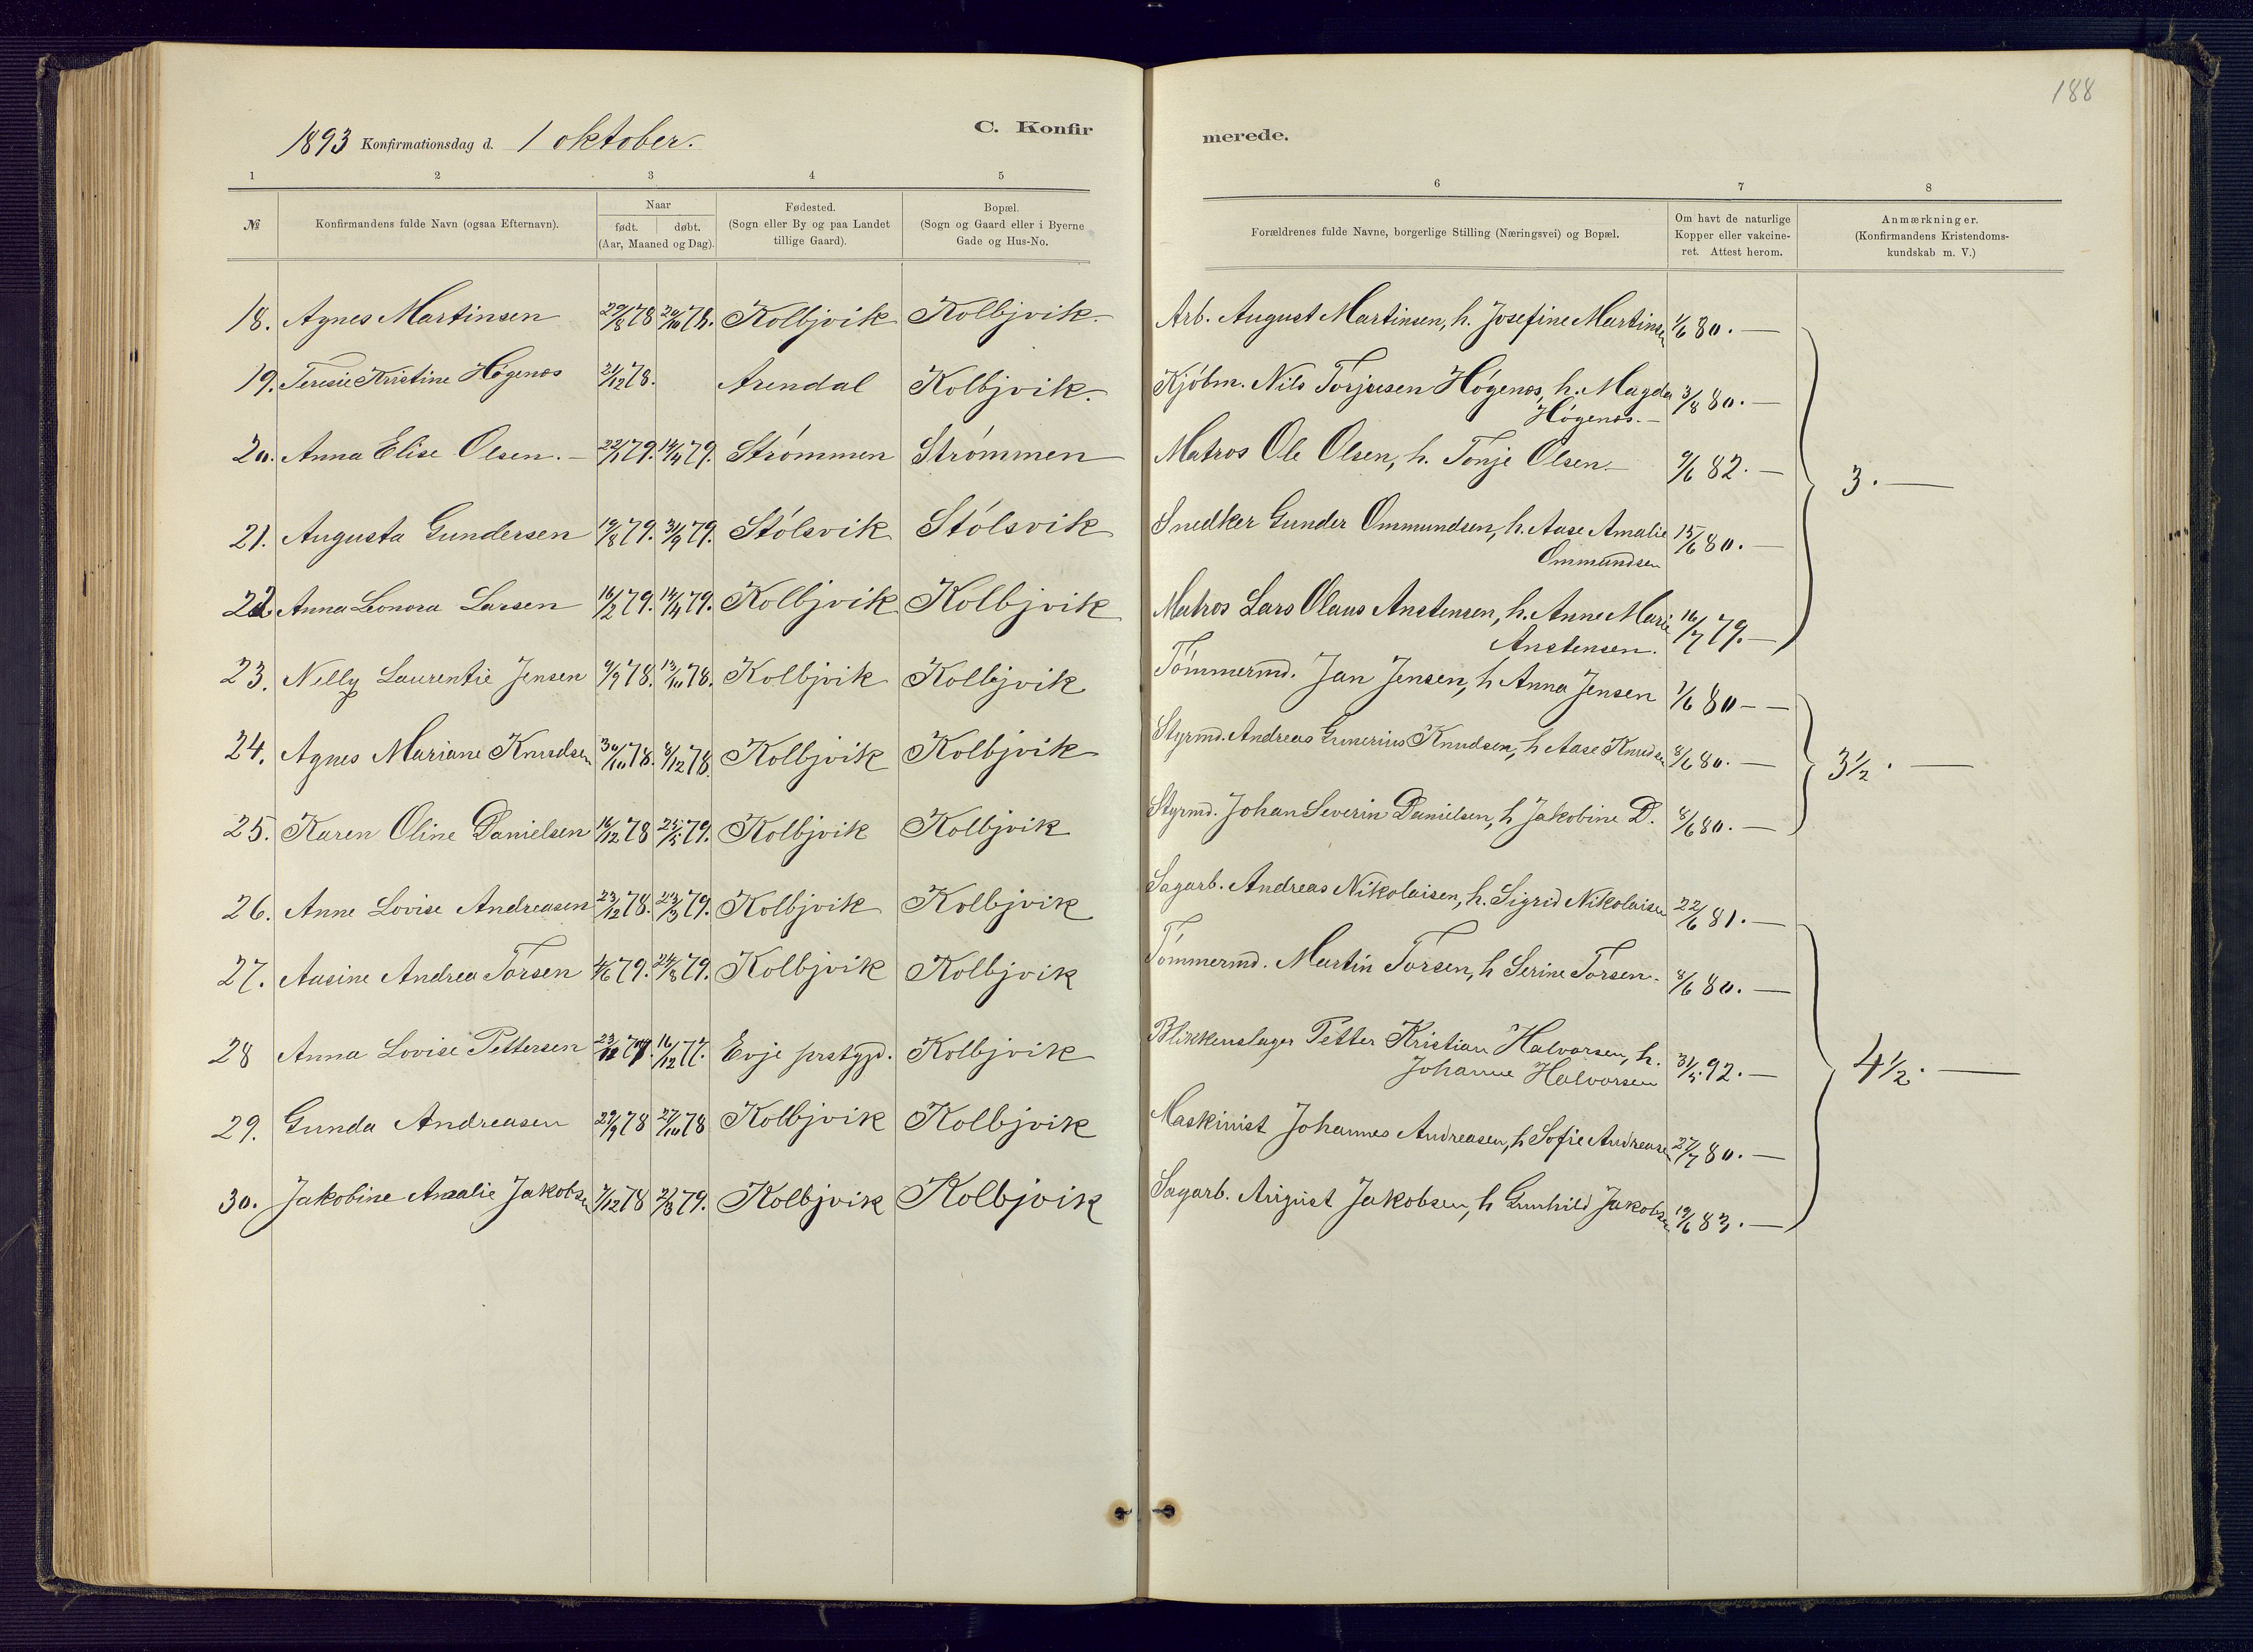 188
1893 Konfirmationsdag d. 1 oktober.
C. Konfir
merede.
1 2 3 4 5 6 7 8
№ Konfirmandens fulde Navn (ogsaa Efternavn). Naar født. døbt. (Aar, Maaned og Dag). Fødested. (Sogn eller By og paa Landet tillige Gaard). Bopæl. (Sogn og Gaard eller i Byerne Gade og Hus-No. Forældrenes fulde Navne, borgerlige Stilling (Næringsvei) og Bopæl. Om havt de naturlige Kopper eller vakcineret. Attest herom. Anmærkninger. (Konfirmandens Kristendomskundskab m. V.)
18. Agnes Martinsen 29/8 78 20/10 78. Kolbjvik Kolbjvik. Arb. August Martinsen, h. Josefine Martinsen 1/6 80. —
19. Teresie Kristine Högenæs 21/12 78. Arendal Kolbjvik. Kjöbm. Nils Torjusen Högenæs, h. Magda 3/8 80. —
Högenæs. —
20. Anna Elise Olsen. — 22/1 79. 14/4 79. Strömmen Strömmen Matros Ole Olsen, h. Tonje Olsen — 9/6 82. —
3. —
21. Augusta Gundersen 19/8 79. 31/9 79. Stölsvik Stölsvik Snedker Gunder Ommundsen, h. Aase Amalie 15/6 80. —
Ommundsen
22 Anna Leonora Larsen 16/2 79. 14/4 79. Kolbjvik Kolbjvik Matros Lars Olaus Anstensen, h. Anne Marie 16/7 79. —
Anstensen.
23. Nelly Laurentie Jensen 9/9 78. 13/10 78. Kolbjvik Kolbjvik Tömmermd. Jan Jensen, h Anna Jensen 1/6 80 — —
24. Agnes Mariane Knudsen 30/10 78. 8/12 78. Kolbjvik Kolbjvik Styrmd. Andreas Gunerius Knudsen, h Aase Knudsen 8/6 80. —
3 1/2. —
25. Karen Oline Danielsen 16/12 78 25/5 79. Kolbjvik Kolbjvik Styrmd. Johan Severin Danielsen, h Jakobine D. 8/6 80. —
26. Anne Lovise Andreasen 23/12 78. 23/3 79. Kolbjvik Kolbjvik Sagarb. Andreas Nikolaisen, h. Sigrid Nikolaisen 22/6 81. —
27. Aasine Andrea Torsen 4/6 79. 24/8 79. Kolbjvik Kolbjvik Tömmermd. Martin Torsen, h Serine Torsen. 8/6 80. —
28 Anna Lovise Pettersen 16/12 77. Evje prstgjd. Kolbjvik Blikkenslager Petter Kristian Halvorsen, h. 31/5 92. —
Johanne Halvorsen
4 1/2. —
29. Gunda Andreasen 29/9 78 27/10 78 Kolbjvik Kolbjvik Maskinist Johannes Andreasen, h Sofie Andreasen 27/7 80. —
30. Jakobine Amalie Jakobsen 7/12 78 2/3 79. Kolbjvik Kolbjvik Sagarb. August Jakobsen, h Gunhild Jakobsen 19/6 83. —